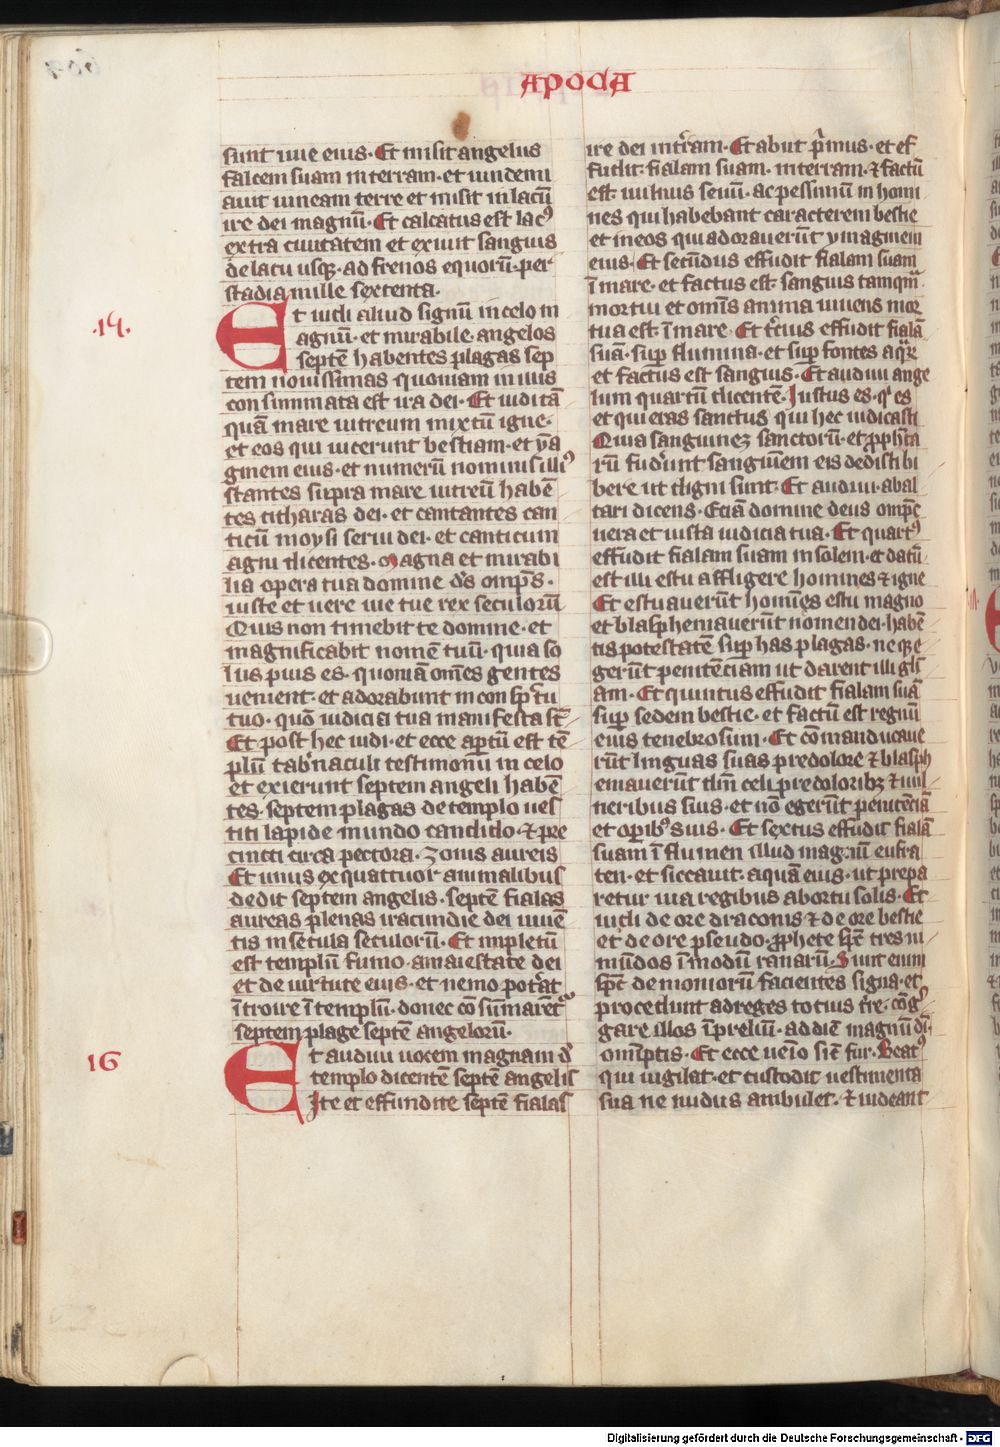 APOCA
sunt uue eius. Et misit angelus
falcem suam in terram. et uindemi
auit uineam terre et misit in lacū
ire dei magnū. Et calcatus est lacꝰ
extra ciuitatem et exiuit sanguis
de lacu usqꝫ. ad frenos equorū. per
stadia mille sexcenta.
.15.
Et uidi aliud signū in celo m
agnū. et mirabile. angelos
septē habentes plagas sep
tem nouissimas quoniam in illis
consummata est ira dei. Et uidi tā
quā mare uitreum mixtū igne.
et eos qui uicerunt bestiam. et yma
ginem eius. et numerū nominis illiꝰ
stantes supra mare uitreū habē
tes citharas dei. et cantantes can
ticū moysi serui dei. et canticum
agni dicentes. Magna et mirabi
lia opera tua domine dꝰs omp̄s.
iuste et uere uie tue rex seculorū
Quis non timebit te domine. et
magnificabit nomē tuū. quia so
lus pius es. quoniā om̄es gentes
uenient. et adorabunt in conspc̄tu
tuo. quō iudicia tua manifesta sт̄
Et post hec uidi. et ecce aptū est tē
plū tab'naculi testimoniū in celo
et exierunt septem angeli habē
tes. septem plagas de templo ues
titi lapide mundo candido. ⁊ pre
cincti circa pectora. zonis aureis
Et unus ex quattuor animalibus
dedit septem angelis. septē fialas
aureas plenas iracundie dei uiuē
tis in secula seculorū. Et impletū
est templū fumo. a maiestate dei
et de uirtute eius. et nemo pot'at
ītroire ī templū. donec cōsūmarēt'
septem plage septē angelorū.
16
Et audiui uocem magnam d'
templo dicentē septē angelis
Ite et effundite septē fialas
ire dei in tr̄am. Et abiit p'mus. et ef
fudit. fialam suam. in terram. ⁊ factū
est. uulnus seuū. ac pessimū in homi
nes qui habebant caracterem bestie
et in eos qui adorauerūt ymaginem
eius. Et secūdus effudit fialam suam
ī mare. et factus est. sanguis tamqm̄
mortui et om̄is anima uiuens mor
tua est ī mare. Et t'cius effudit fialā
suā. sup flumina. et sup fontes aqꝝ
et factus est sanguis. Et audiui ange
lum quartū dicentē. Iustus es. qͥ es
et qui eras sanctus qui hec iudicasti
Quia sanguinez sanctorū. et p̱pheta
rū fud'unt sanguinem eis dedisti bi
bere ut digni sunt. Et audiui. abal
tari dicens. Eciā domine deus omp̄c
uera et iusta iudicia tua. Et quartꝰ
effudit fialam suam in solem. et datū
est illi estu affligere homines ⁊ igne
Et estuauerūt homīes estu magno
et blasphemauerūt nomen dei. habē
tis potestatē sup has plagas. neqꝫ e
gerūt penitēciam ut darent illi gl'i
am. Et quintus effudit fialam suā
sup sedem bestie. et factū est regnū
eius tenebrosum. Et cōmanducaue
rūt linguas suas pre dolore ⁊ blasph
emauerūt dm̄ celi pre doloribꝫ ⁊ uul
neribus suis. et nō egerūt penitēciā
et opibꝰ suis. Et sextus effudit fialā
suam ī flumen illud magnū eufra
ten. et siccauit. aquā eius. ut prepa
retur uia regibus abortu solis. Et
uidi de ore draconis ⁊ de ore bestie
et de ore pseudo. p̱phete sp̄c tres in
mūdos ī modū ranarū. Sunt enim
sp̄c demoniorū facientes signa. et
procedunt ad reges totius t're. cōg'
gare illos ī preliū. ad diē magnū di.
om̄ptis. Et ecce uēio sic̄ fur. Beatꝰ
qui uigilat. et custodit uestimenta
sua ne nudus ambulet. ⁊ uideant
Digitalisierung gefördert durch die Deutsche Forschungsgemeinschaft - DFG